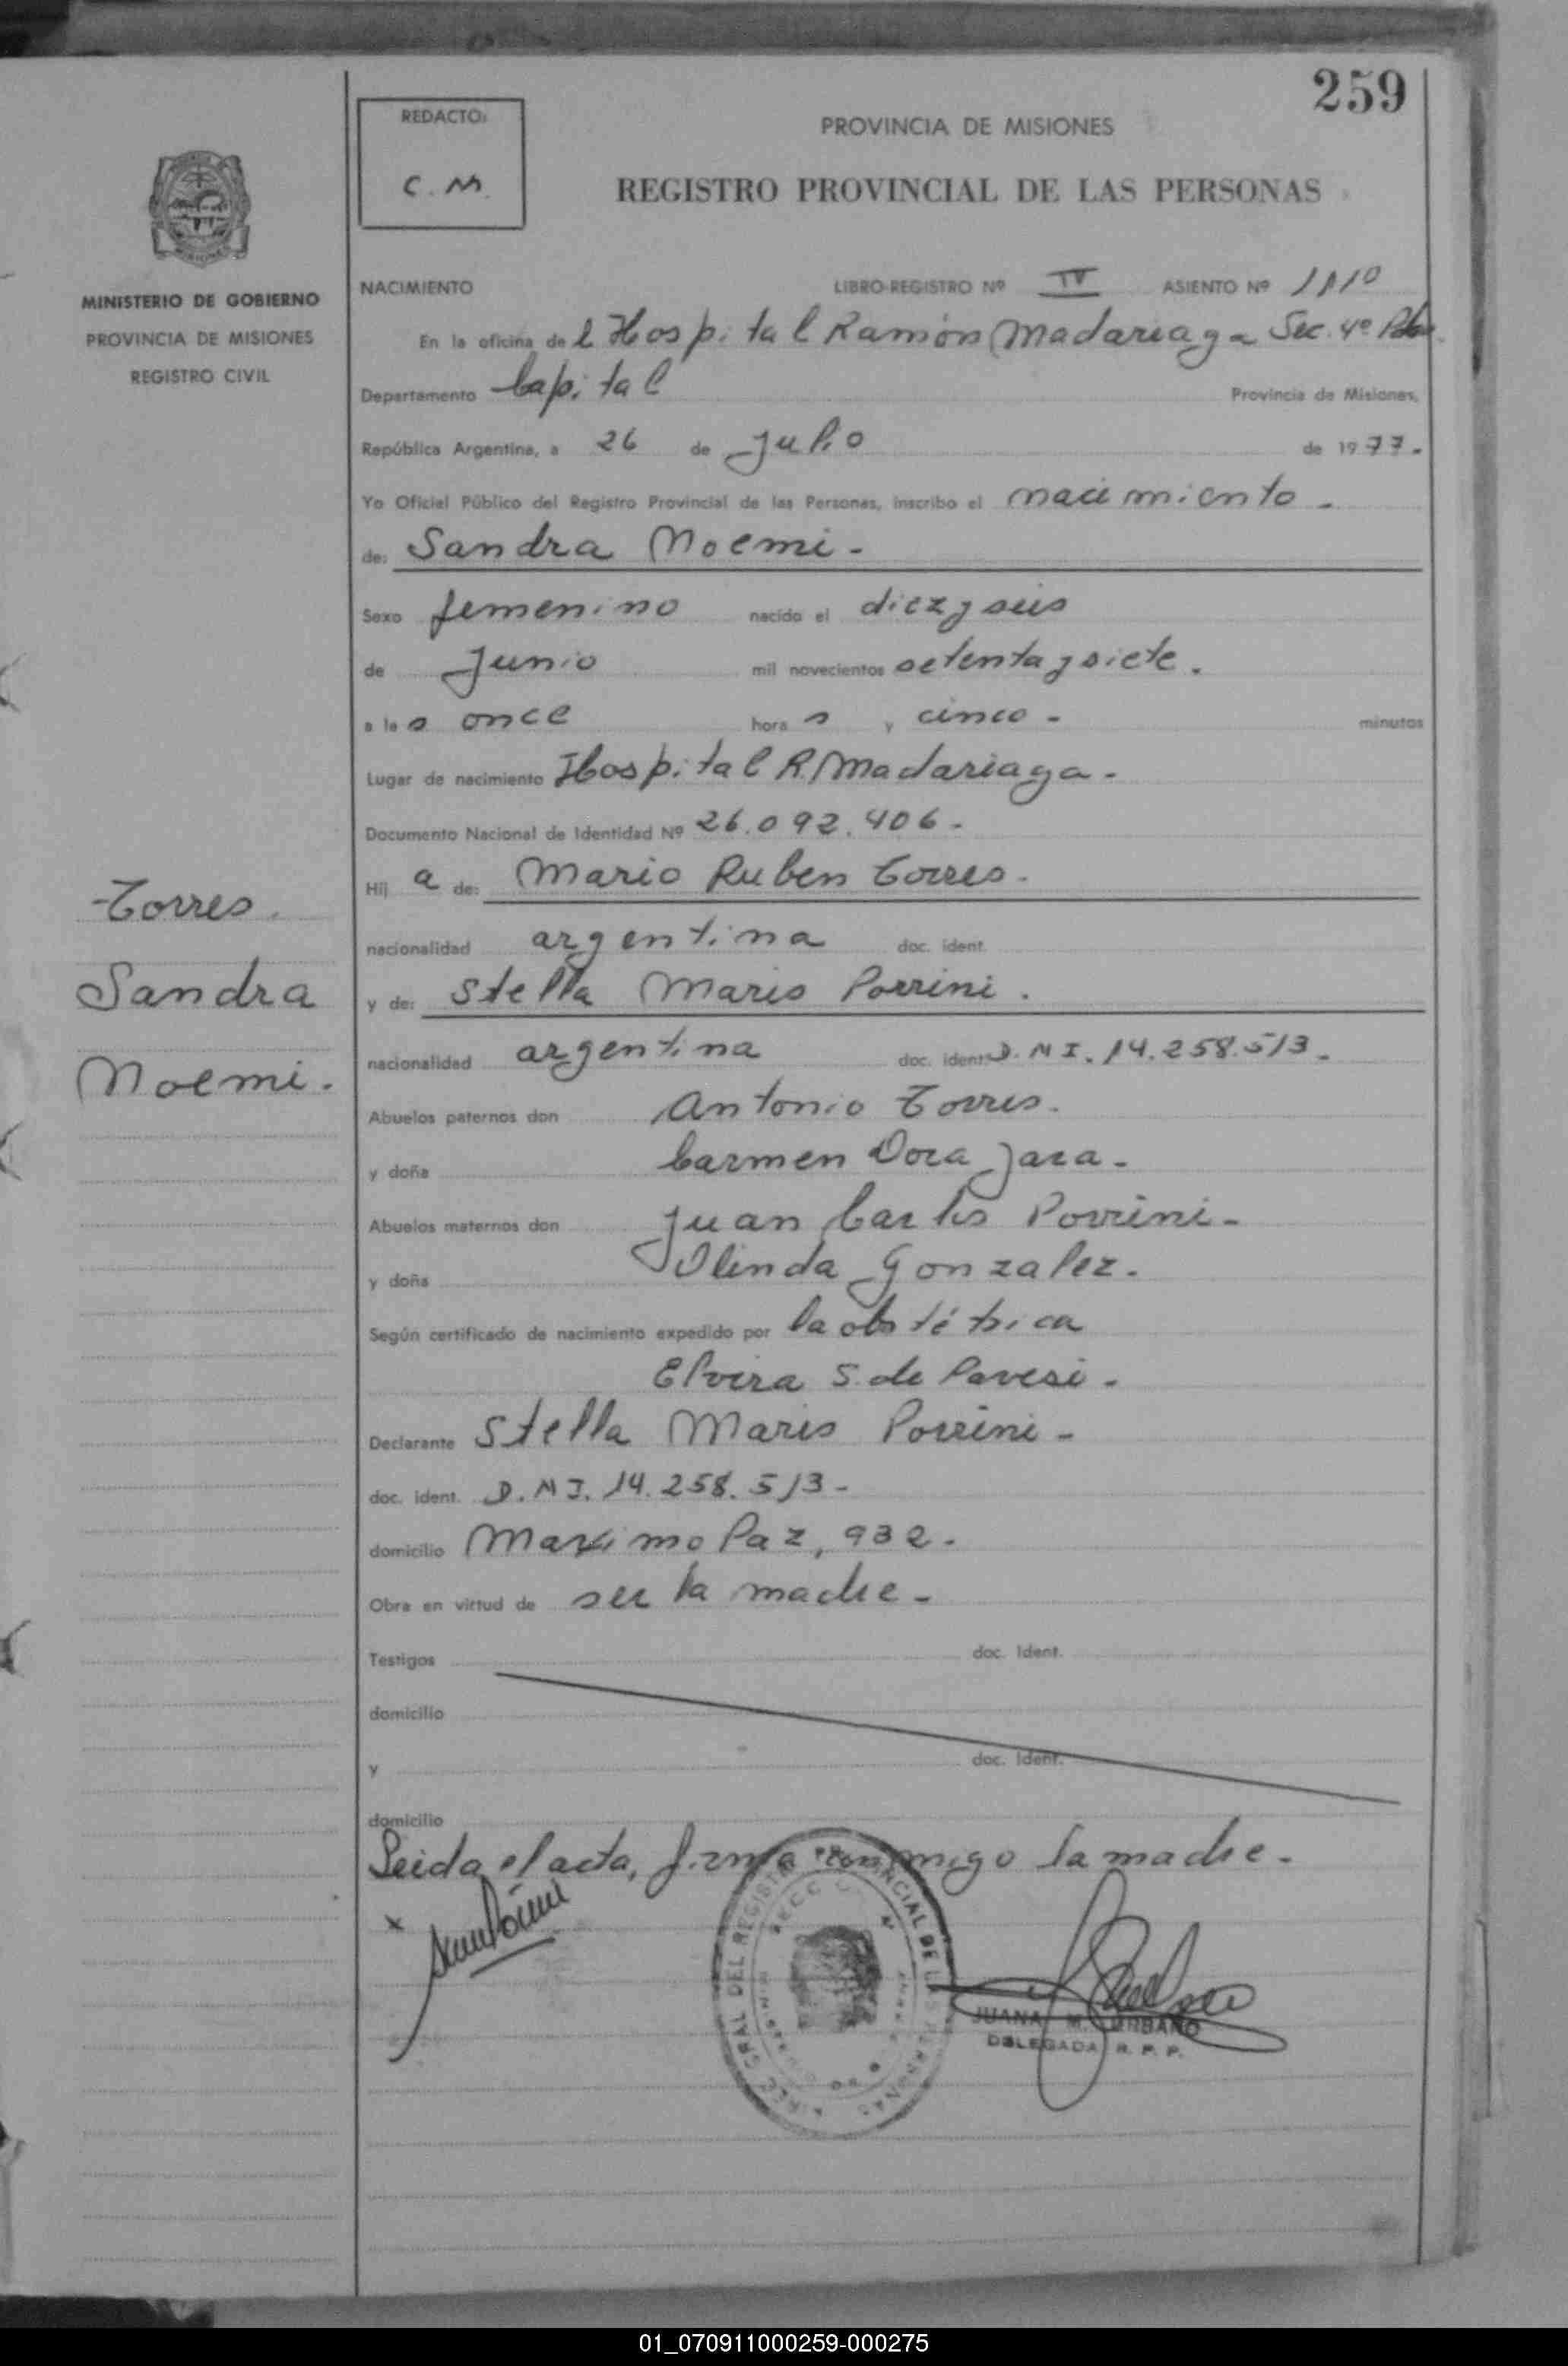 259
REDACTO:
C. M.
PROVINCIA DE MISIONES
REGISTRO PROVINCIAL DE LAS PERSONAS
MINISTERIO DE GOBIERNO
PROVINCIA DE MISIONES
REGISTRO CIVIL
NACIMIENTO LIBRO-REGISTRO Nº IV ASIENTO Nº 1110
En la oficina del Hospital Ramón Madariaga Sec. 4º
Departamento Capital Provincia de Misiones,
República Argentina, a 26 de Julio de 1977.-
Yo Oficial Público del Registro Provincial de las Personas, inscribo el nacimiento -
de: Sandra Noemi -
Sexo femenino nacido el diezyseis
de Junio mil novecientos setentaysiete.
a las once horas y cinco - minutos
Lugar de nacimiento Hospital R. Madariaga -
Documento Nacional de Identidad Nº 26.092.406 -
Hija de: Mario Ruben Torres -
nacionalidad argentina doc. ident.
y de: Stella Maris Porrini .
nacionalidad argentina doc. ident. D. N I. 14.258.513 -
Abuelos paternos don Antonio Torres.
y doña Carmen Dora Jara -
Abuelos maternos don Juan Carlos Porrini -
y doña Olinda Gonzalez.
Según certificado de nacimiento expedido por la obstétrica
Elvira S. de Pavesi -
Declarante Stella Maris Porrini -
doc. ident. D. N I. 14.258.513 -
domicilio Maximo Paz, 932 -
Obra en virtud de ser la madre -
Testigos doc. Ident.
domicilio
y doc. Ident.
domicilio
Leida el acta, firma conmigo la madre -
Torres
Sandra
Noemi.
JUANA M. URBANO
DELEGADA R. P. P.
01_070911000259-000275